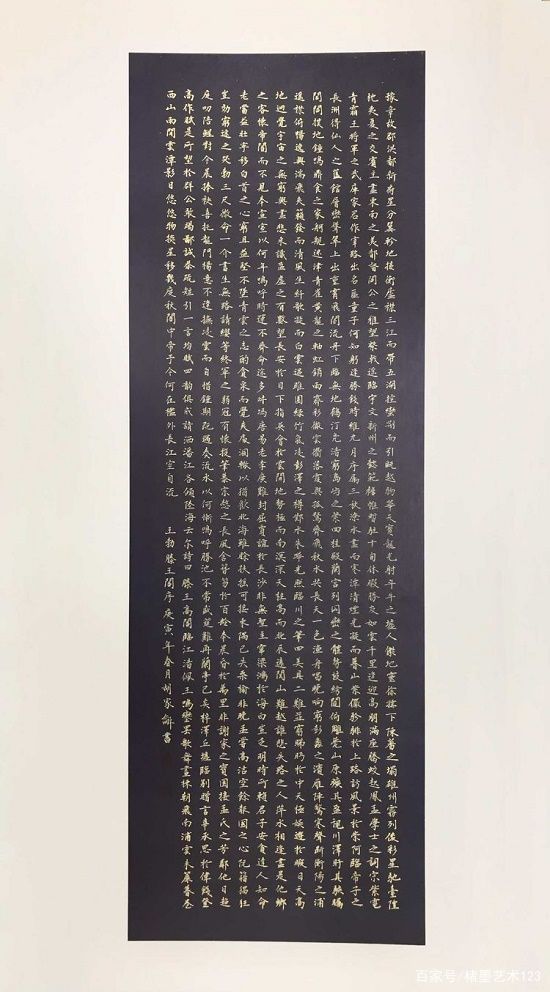 豫章故郡洪都新府星分翼軫地接衡廬襟三江而帶五湖控蠻荆而引甌越物華天寶龍光射牛斗之墟人傑地靈徐孺下陳蕃之榻雄州霧列俊彩星馳臺隍
枕夷夏之交賓主盡東南之美都督閻公之雅望棨戟遥臨宇文新州之懿範襜帷暫駐十旬休暇勝友如雲千里逢迎高朋滿座騰蛟起鳳孟學士之詞宗紫電
青霜王將軍之武庫家君作宰路出名區童子何知躬逢勝餞時維九月序屬三秋潦水盡而寒潭清煙光凝而暮山紫儼驂騑於上路訪風景於崇阿臨帝子之
長洲得仙人之舊館層巒聳翠上出重霄飛閣流丹下臨無地鶴汀凫渚窮島嶼之縈回桂殿蘭宫列岡巒之體勢披繡闥俯雕甍山原曠其盈視川澤盱其駭矚
閭閻撲地鐘鳴鼎食之家舸艦迷津青雀黄龍之軸虹銷雨霽彩徹雲衢落霞與孤鶩齊飛秋水共長天一色漁舟唱晚響窮彭蠡之濱雁陣驚寒聲斷衡陽之浦
遥襟俯暢逸興遄飛爽籟發而清風生纖歌凝而白雲遏睢園緑竹氣凌彭澤之樽鄴水朱華光照臨川之筆四美具二難并窮睇眄於中天極娱遊於暇日天高
地迥覺宇宙之無窮興盡悲來識盈虚之有數望長安於日下指吴會於雲間地勢極而南溟深天柱高而北辰遠關山難越誰悲失路之人萍水相逢盡是他鄉
之客懷帝閽而不見奉宣室以何年嗚呼時運不齊命途多舛馮唐易老李廣難封屈賈誼於長沙非無聖主竄梁鴻於海曲豈乏明時所賴君子安貧達人知命
老當益壯寧移白首之心窮且益堅不墜青雲之志酌貪泉而覺爽處涸轍以猶歡北海雖賒扶摇可接東隅已失桑榆非晚孟嘗高潔空餘報國之心阮籍猖狂
豈効窮途之哭勃三尺微命一介書生無路請纓等終軍之弱冠有懷投筆慕宗慤之長風舍簪笏於百齡奉晨昏於萬里非謝家之寶樹接孟氏之芳鄰他日趨
庭叨陪鯉對今晨捧袂喜托龍門楊意不逢撫凌雲而自惜鍾期既遇奏流水以何慚嗚呼勝地不常盛筵難再蘭亭已矣梓澤丘墟臨别贈言幸承恩於偉餞登
高作賦是所望於群公敢竭鄙誠恭疏短引一言均賦四韻俱成請灑潘江各傾陸海云爾詩曰滕王高閣臨江渚佩玉鳴鸞罷歌舞畫棟朝飛南浦雲朱簾暮卷
西山雨閒雲潭影日悠悠物换星移幾度秋閣中帝子今何在檻外長江空自流 王勃滕王閣序庚寅年春月胡家 書
百家号/楮墨艺术123